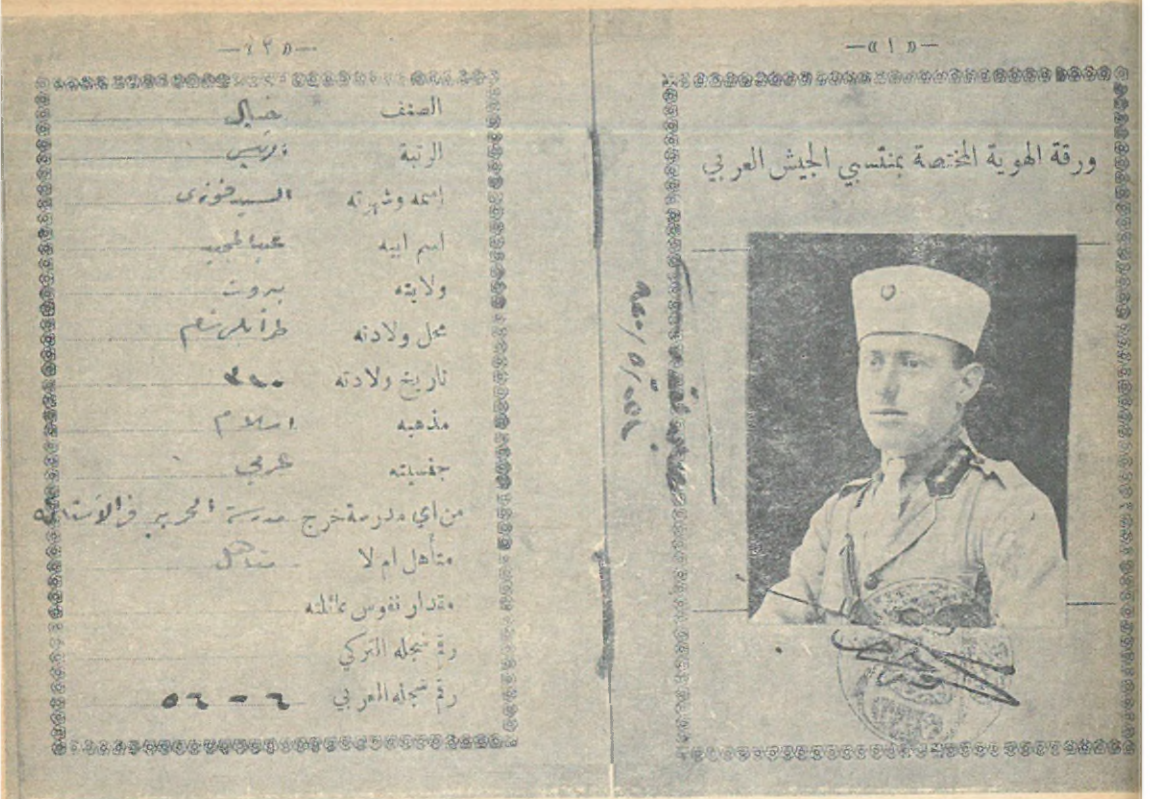 —« ١ »—
ورقة الهوية المختصة بمنتسبي الجيش العربي
—« ٢ »—
الصنف خيال
الرتبة الرئيس
اسمه وشهرته السيد فوزي
اسم ابيه عبد المجيد
ولايته بيروت
محل ولادته طرابلس شام
تاريخ ولادته
مذهبه اسلام
جنسيته عربي
من اي مدرسة خرج مدرسة الحربيه في الاستانه
متأهل ام لا متأهل
مقدار نفوس عائلته
رقم سجله التركي
رقم سجله العربي